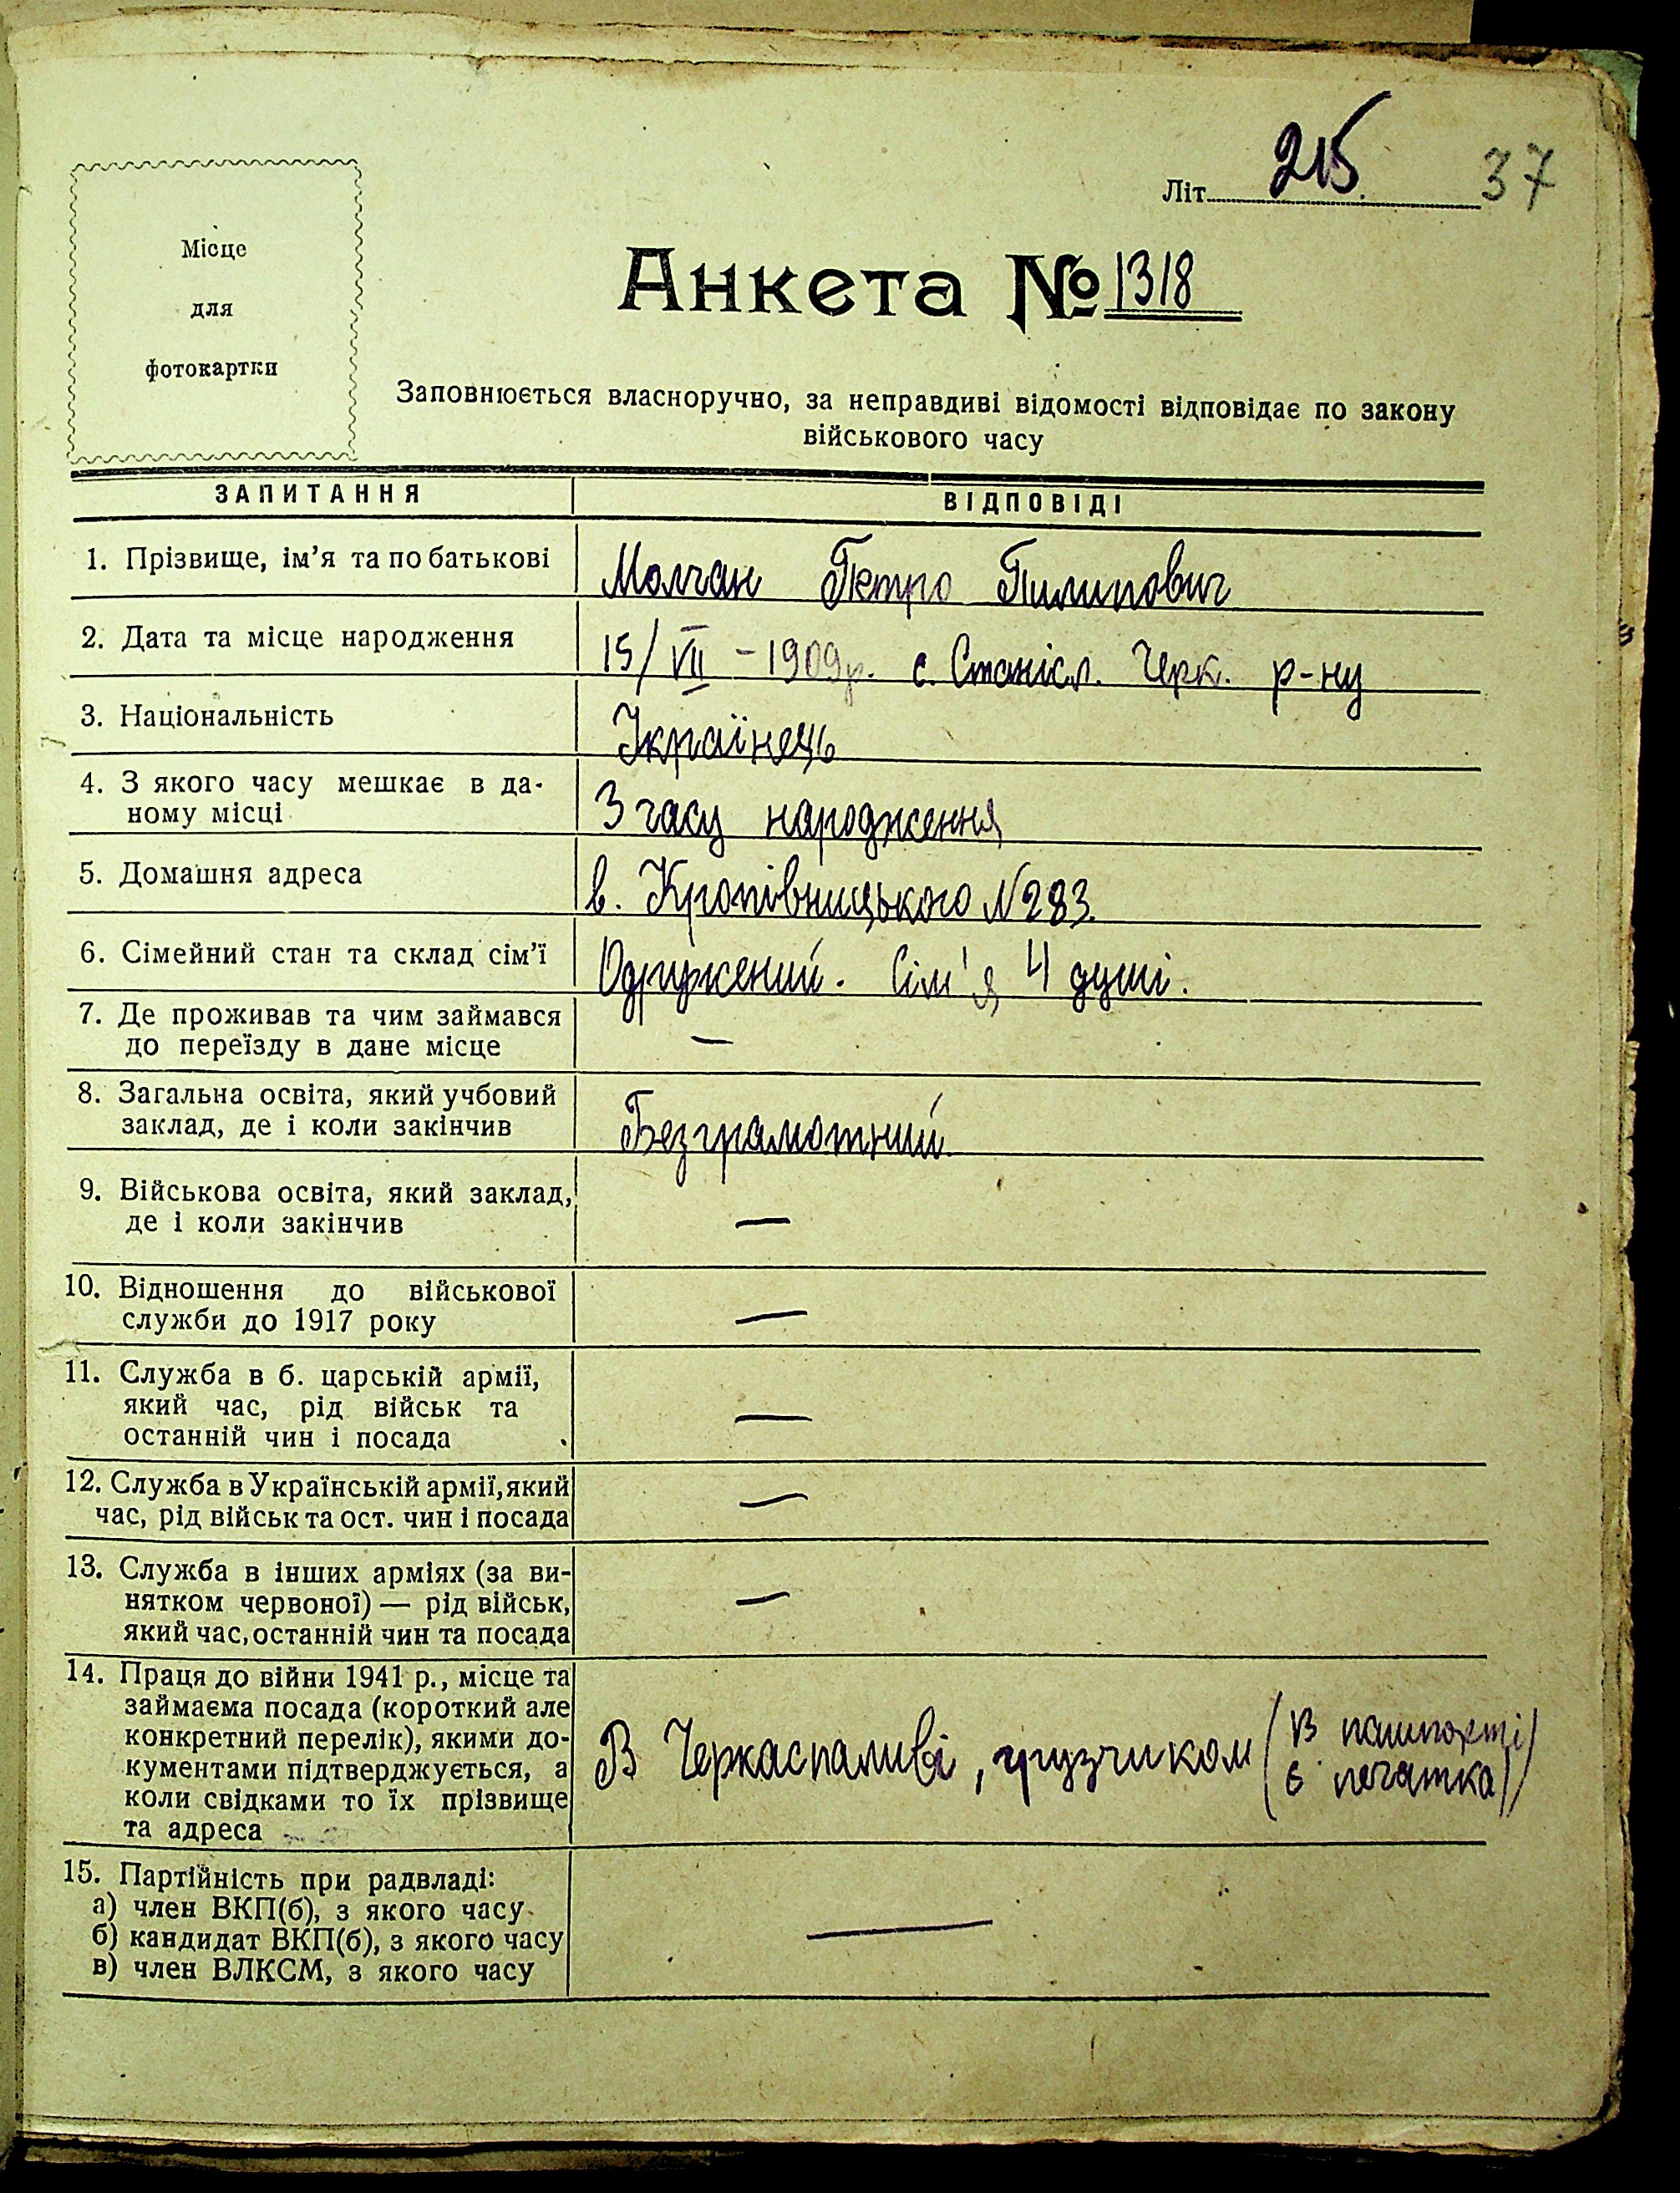 Місце
для
фотокартки
Літ. 215. 37
Анкета № 1318
Заповнюється власноручно, за неправдиві відомості відповідає по закону
військового часу
ЗАПИТАННЯ ВІДПОВІДІ
1. Прізвище, ім'я та по батькові Молчан Петро Пилипович
2. Дата та місце народження 15/VII – 1909р. с. Станісл. Черк. р-ну
3. Національність Українець
4. З якого часу мешкає в да-
ному місці З часу народження
5. Домашня адреса в. Кропівницького N 283.
6. Сімейний стан та склад сім'ї Одружений. Сім'я 4 душі.
7. Де проживав та чим займався
до переїзду в дане місце —
8. Загальна освіта, який учбовий
заклад, де і коли закінчив Безграмотний
9. Військова освіта, який заклад,
де і коли закінчив —
10. Відношення до військової
служби до 1917 року —
11. Служба в б. царській армії,
який час, рід військ та
останній чин і посада —
12. Служба в Українській армії, який
час, рід військ та ост. чин і посада —
13. Служба в інших арміях (за ви-
нятком червоної) — рід військ,
який час, останній чин та посада —
14. Праця до війни 1941 р., місце та
займаєма посада (короткий але
конкретний перелік), якими до-
кументами підтверджується, а
коли свідками то їх прізвище
та адреса
В Черкаспаливі, грузчиком (В пашпорті
є печатка)
15. Партійність при радвладі:
а) член ВКП(б), з якого часу
б) кандидат ВКП(б), з якого часу —
в) член ВЛКСМ, з якого часу